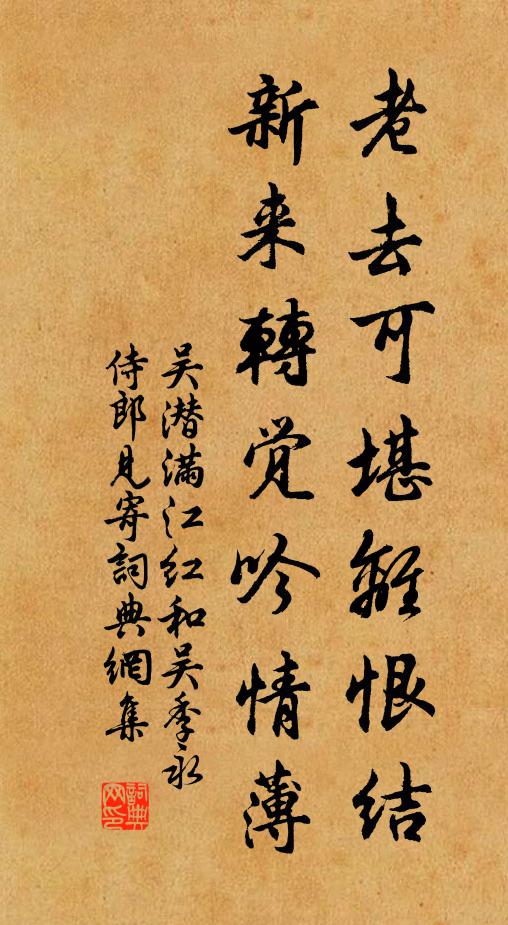 老去可堪離恨结
新来轉觉吟情薄
吴潜满江红和吴季永
侍郎见寄詞典網集
詞典网印